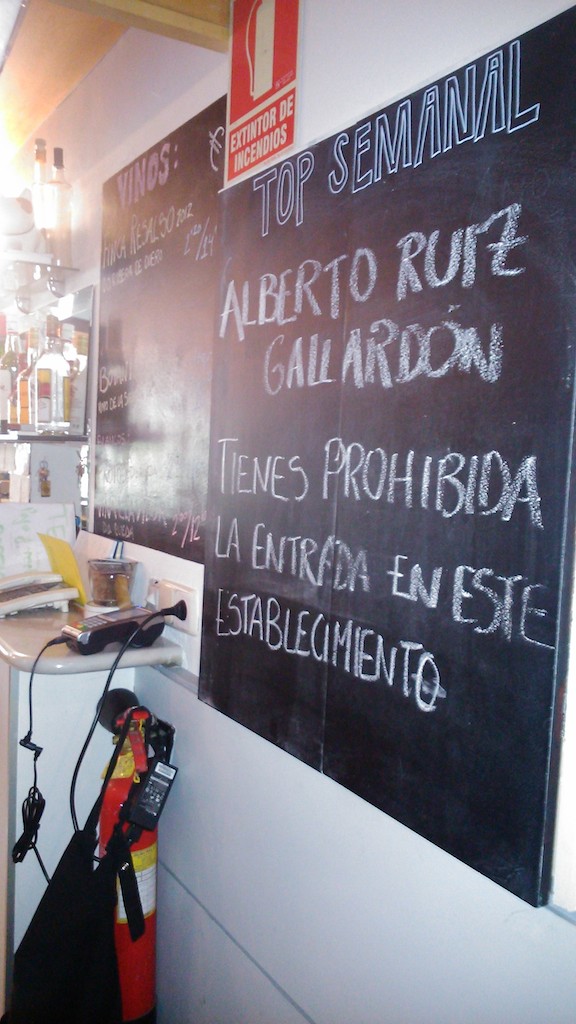 EXTINTOR DE
INCENDIOS
VINOS:
FINCA RESALSO 2012
TOP SEMANAL
ALBERTO RUIZ
GALLARDÓN
TIENES PROHIBIDA
LA ENTRADA EN ESTE
ESTABLECIMIENTO